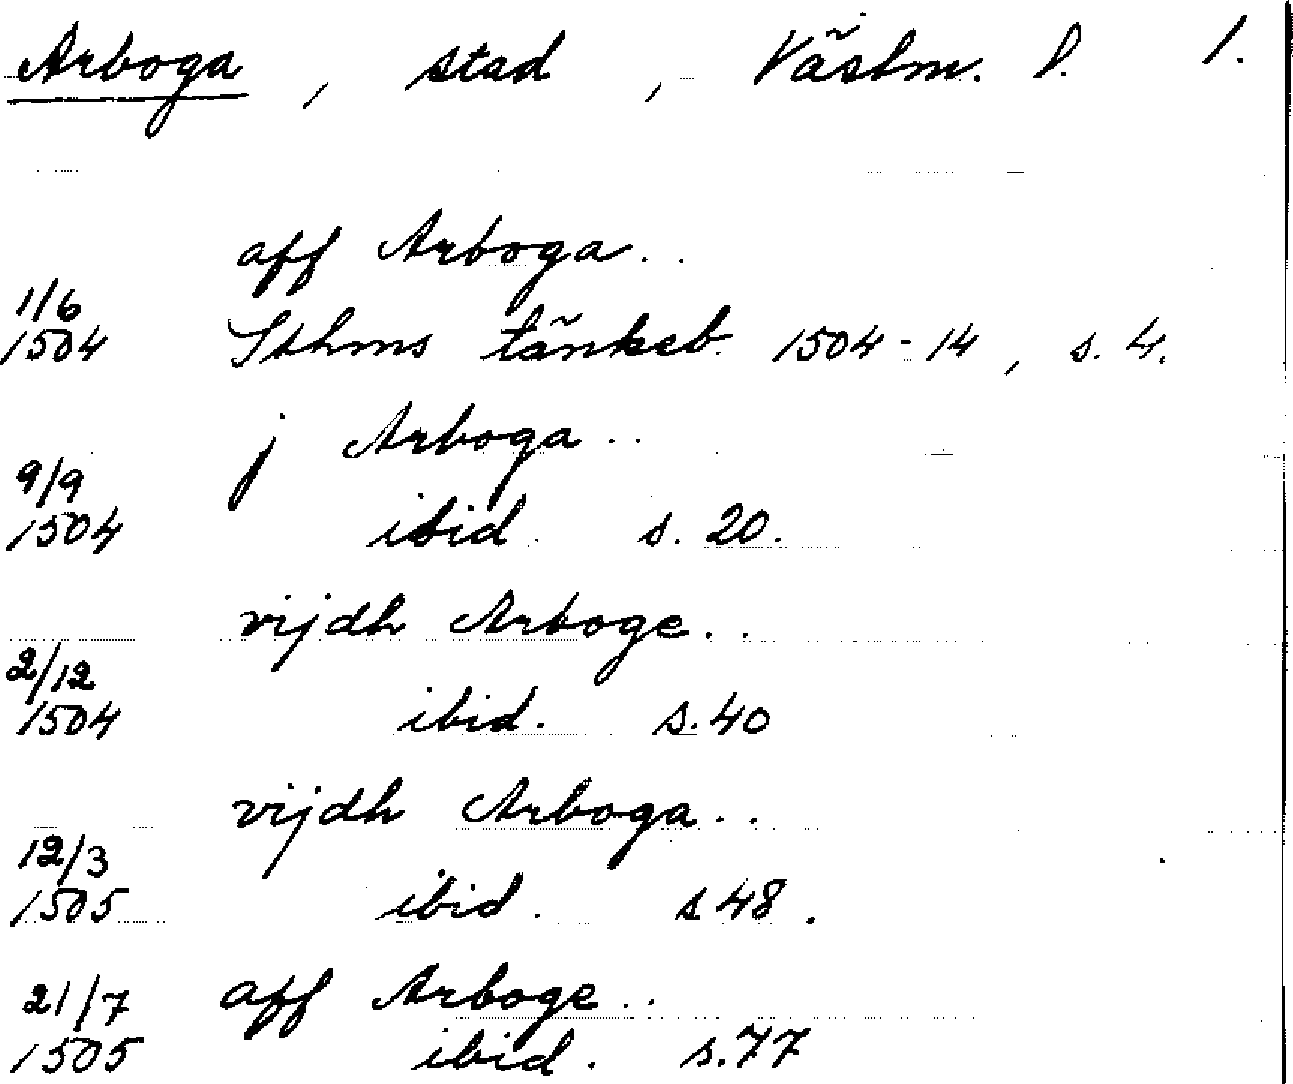 Arboga, stad, Västm. l. 1.
aff Arboga..
1/6
1504 Sthms tänkeb. 1504-14, s. 4.
j Arboga..
9/9
1504 ibid. s. 20.
vijdh Arboge..
2/12
1504 ibid. s. 40
vijdh Arboga..
12/3
1505 ibid. s 48.
21/7 aff Arboge..
1505 ibid. s. 77